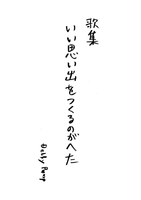 歌集
いい思い出をつくるのがへた